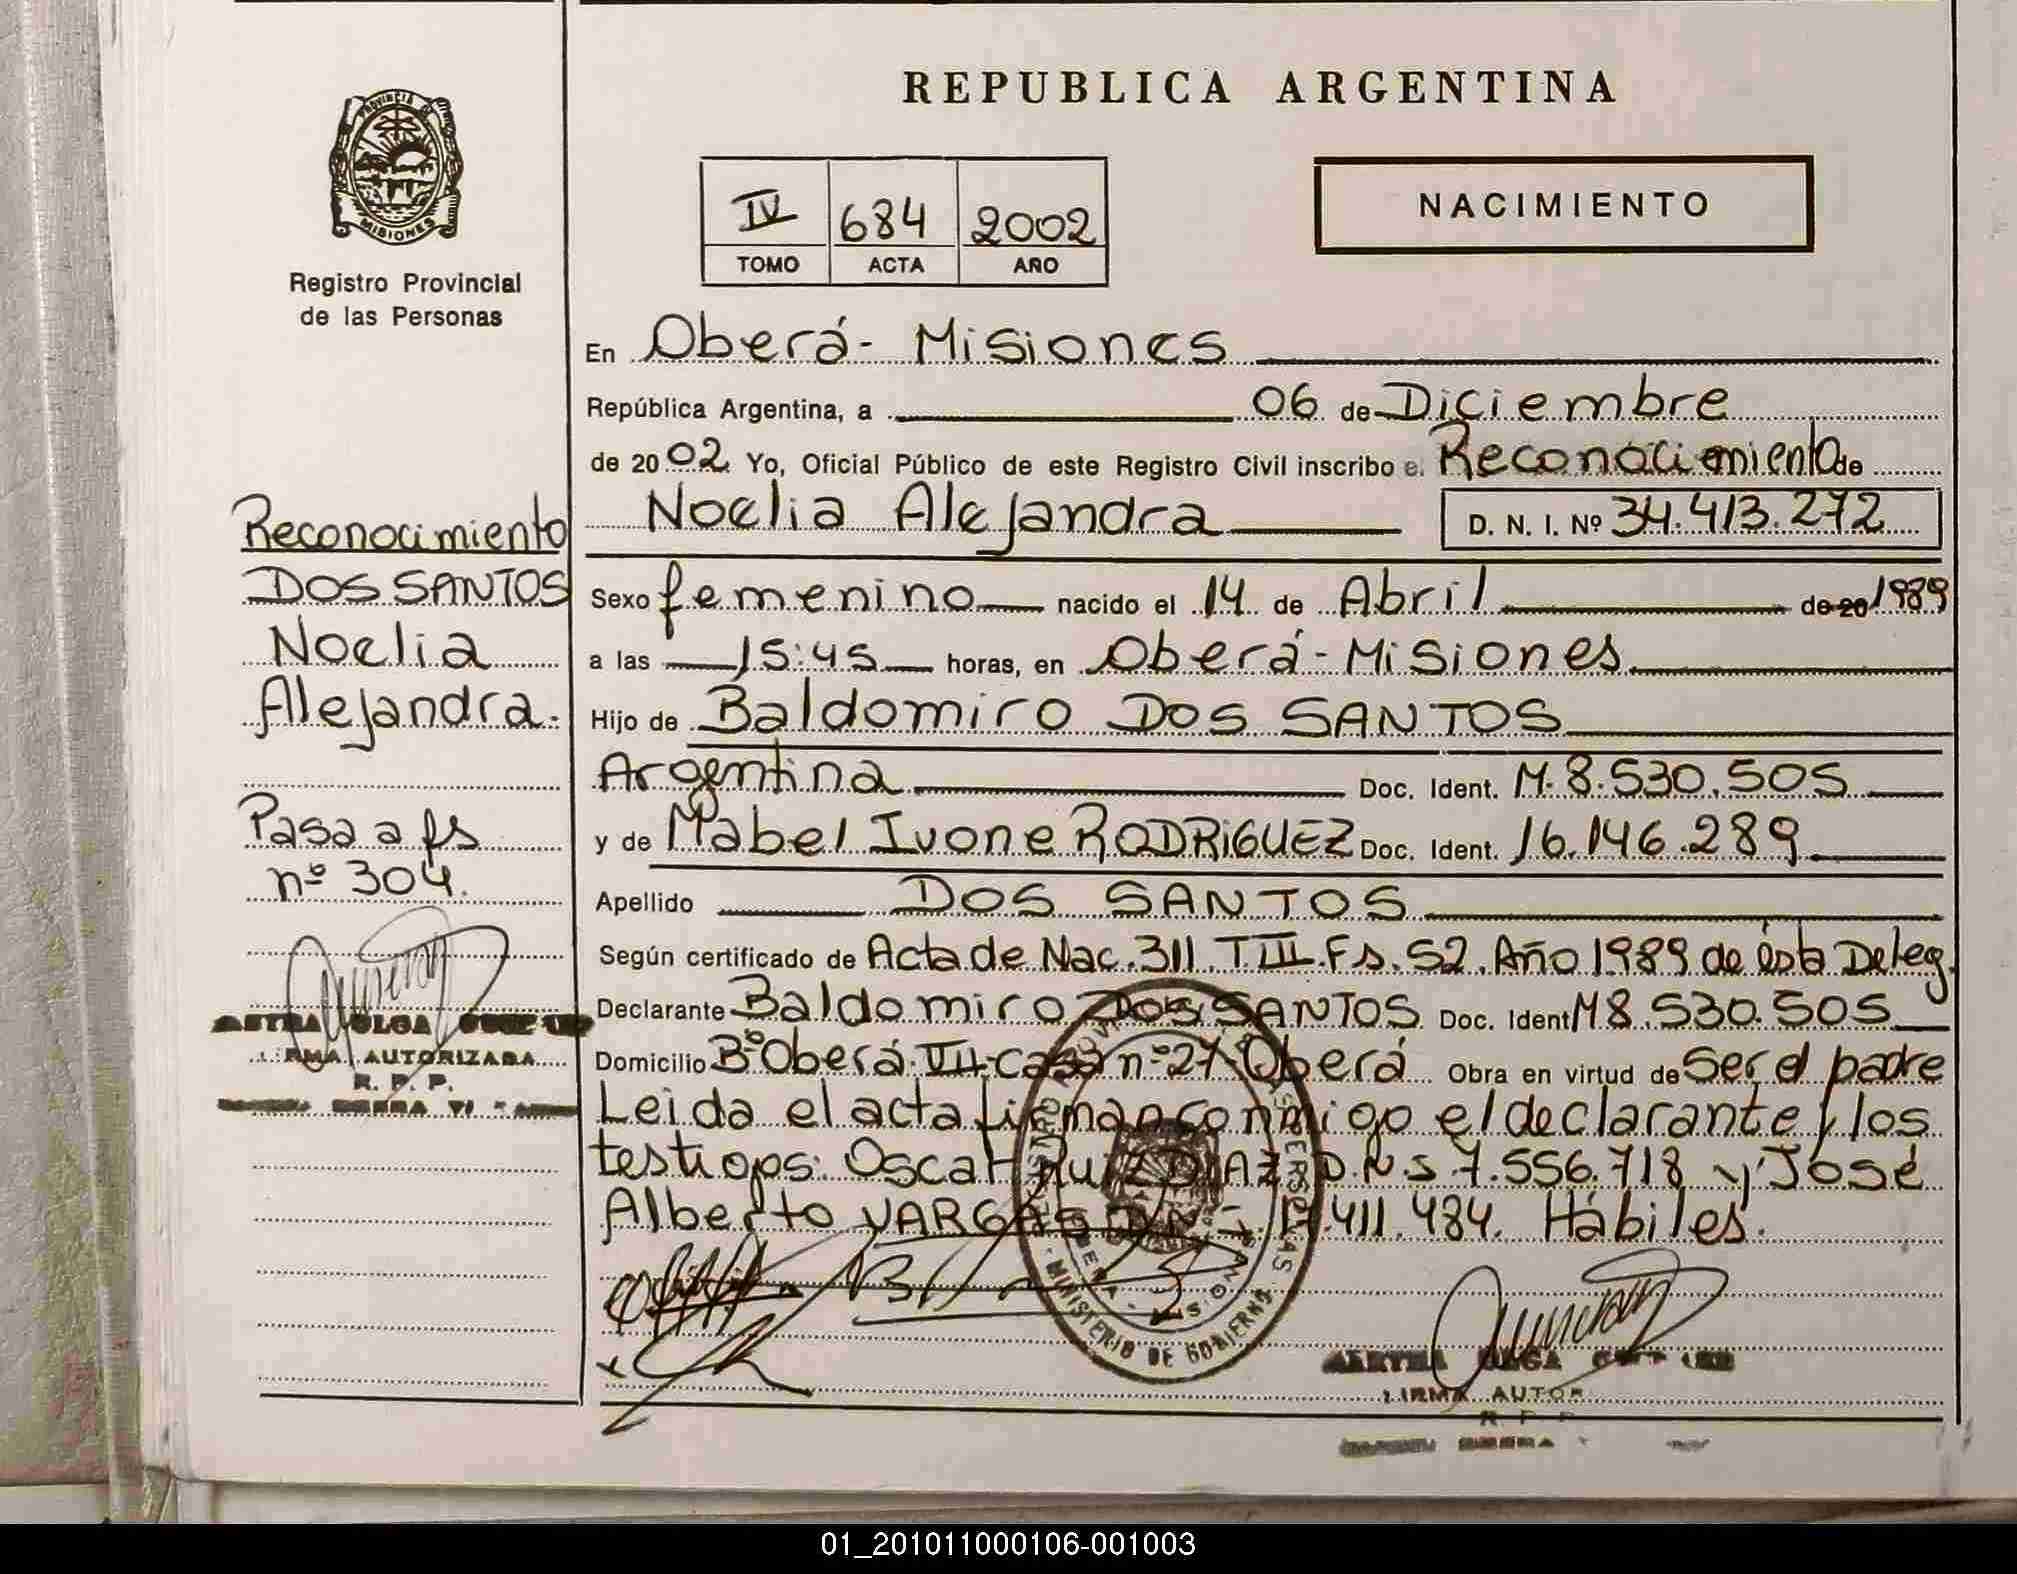 REPUBLICA ARGENTINA
PROVINCIA DE MISIONES
Registro Provincial
de las Personas
IV 684 2002
TOMO ACTA AÑO
NACIMIENTO
En Oberá - Misiones
República Argentina, a 06 de Diciembre
de 2002 Yo, Oficial Público de este Registro Civil inscribo e. Reconocimiento de
Noelia Alejandra D. N. I. Nº 34.413.272
Sexo femenino nacido el 14 de Abril de 20 1989
a las 15:45 horas, en Oberá - Misiones
Hijo de Baldomiro DOS SANTOS
Argentina Doc. Ident. M. 8.530.505
y de Mabel Ivone RODRIGUEZ Doc. Ident. 16.146.289
Apellido DOS SANTOS
Según certificado de Acta de Nac. 311. T III. Fs. 52. Año 1989 de ésta Deleg.
Declarante Baldomiro DOS SANTOS Doc. Ident M 8.530.505
Domicilio Bº Oberá VII - Casa nº 27 Oberá Obra en virtud de Ser el padre
Leida el acta firman conmigo el declarante y los
testigos: Oscar Ruiz DIAZ D.N.I. 7.556.718 y José
Alberto VARGAS D.N.I. 411.484. Hábiles.
Reconocimiento
DOS SANTOS
Noelia
Alejandra.
Pasa a fs
nº 304.
OLGA
FIRMA AUTORIZADA
R. P. P.
MINISTERIO DE GOBIERNO
OLGA
FIRMA AUTOR
R P P
01_201011000106-001003